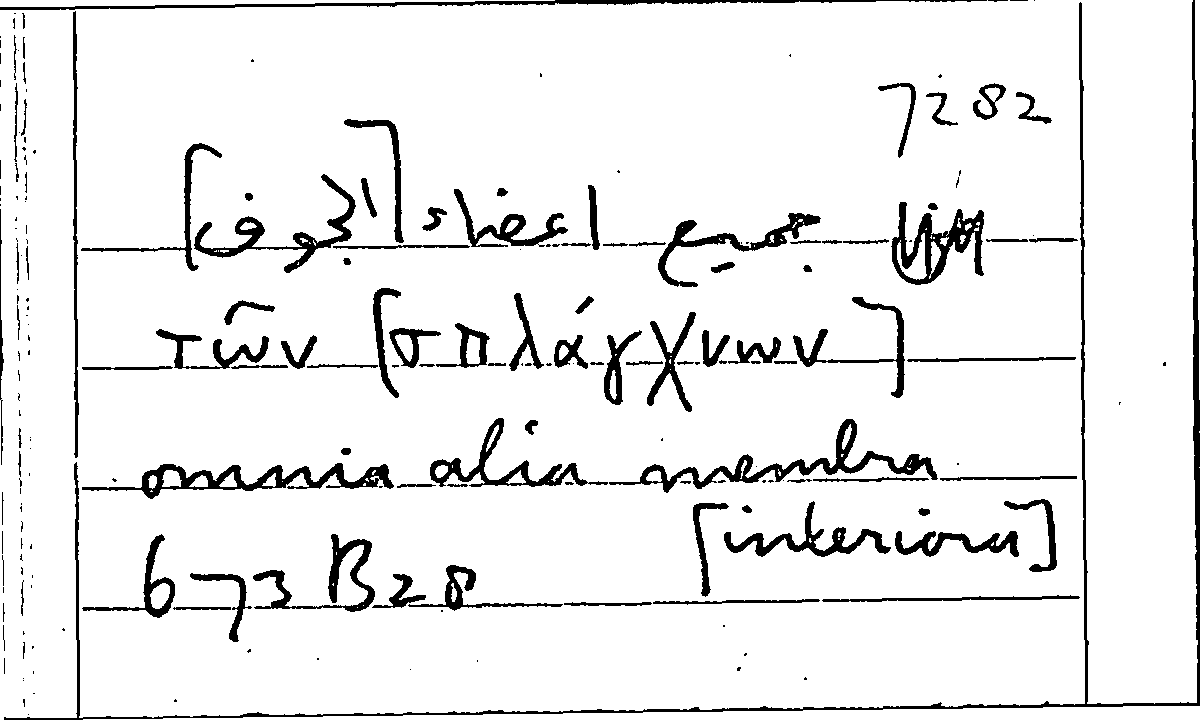 7282
جميع اعضاء [الجوف]
τῶν [σπλάγχνων]
omnia alia membra
[interiora]
673 B 28